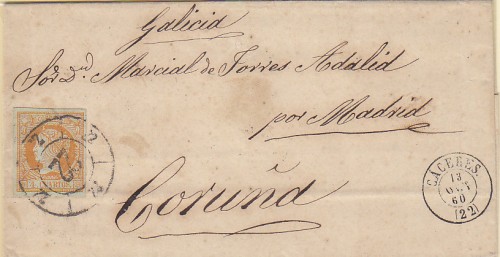 Galicia
Sor. Dn. Marcial de Torres Adalid
por Madrid
Coruña
CACERES
13
OCT
60
(22)